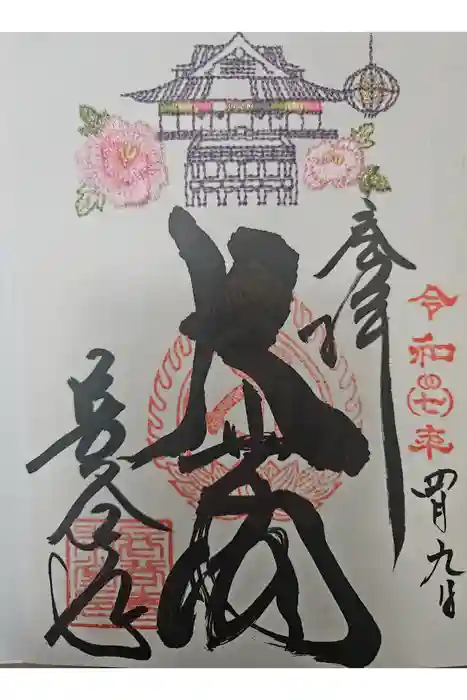 奉拝
令和七年
四月九日
大悲閣
長谷寺